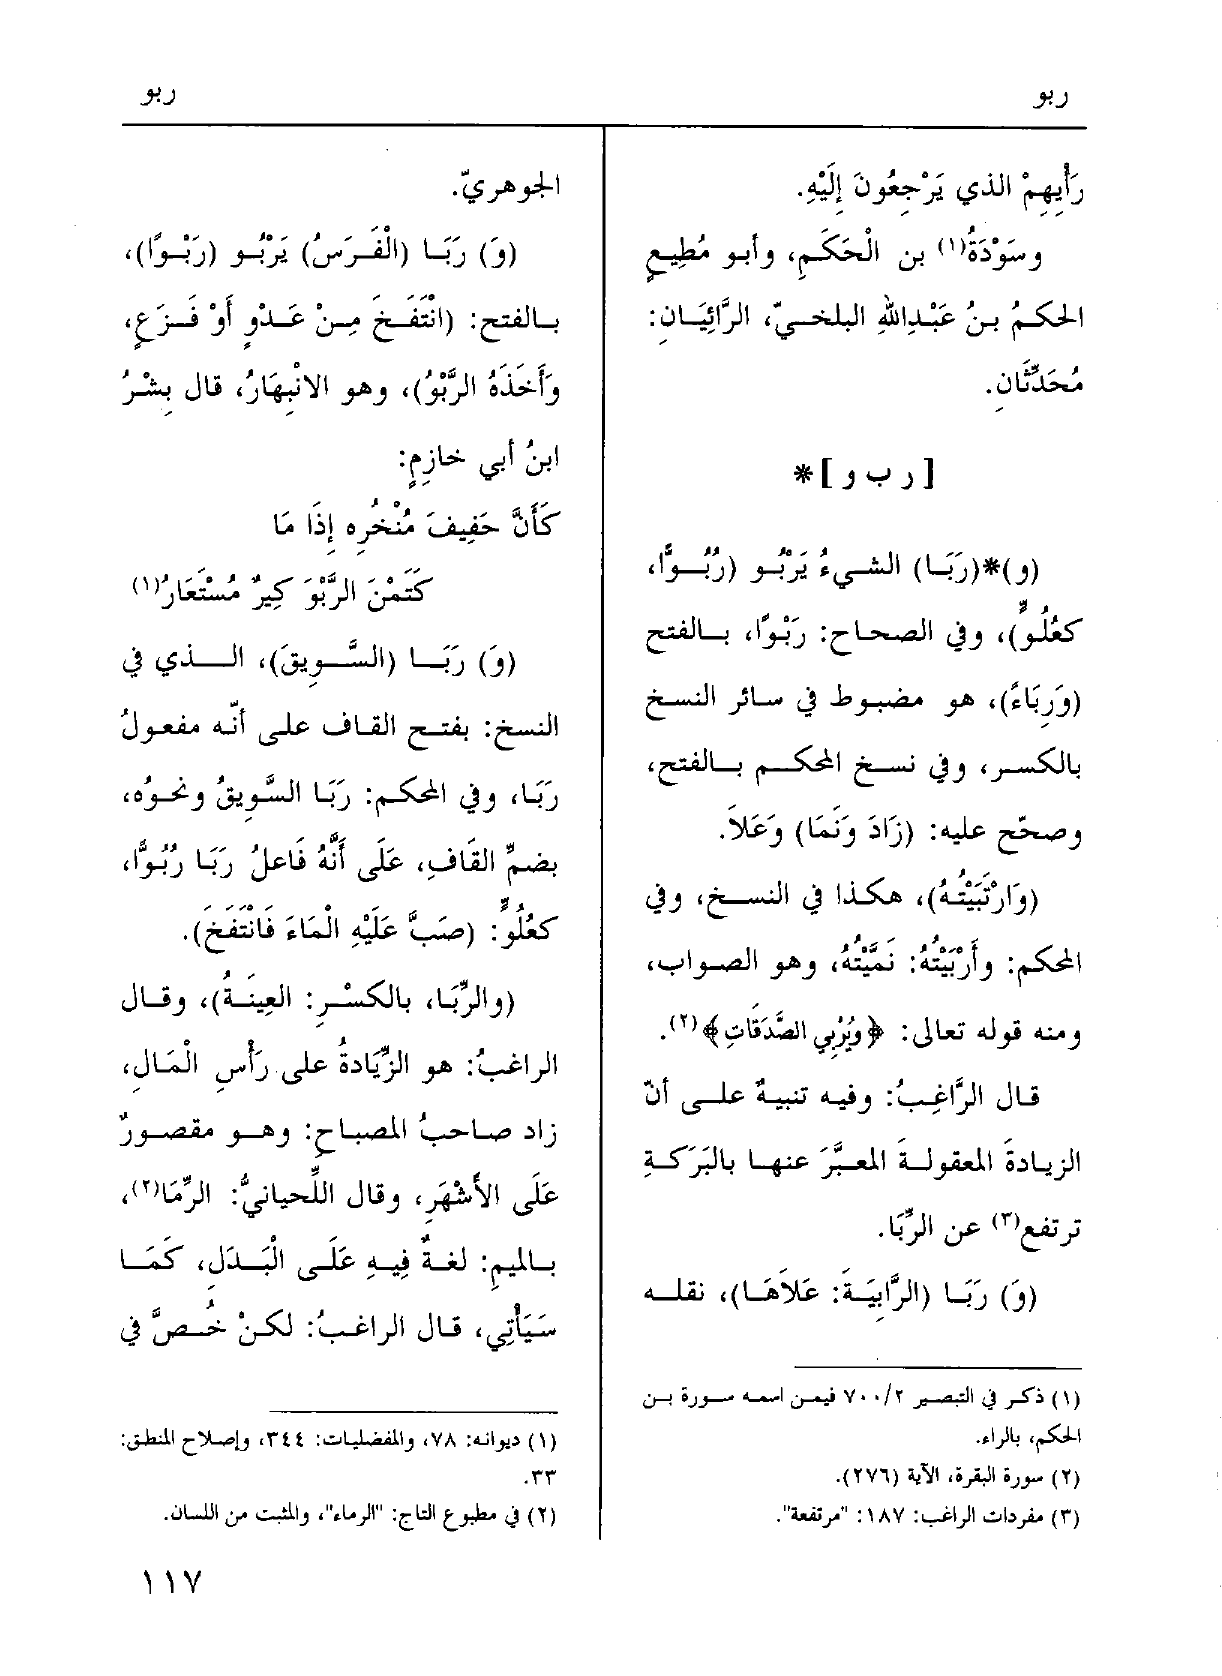 ربو
ربو
رَأْيِهِمْ الذي يَرْجِعُونَ إِلَيْهِ.
وسَوْدَةُ(١) بن الْحَكَمِ، وأبو مُطِيعٍ
الحكمُ بنُ عَبْدِاللهِ البلخيّ، الرَّائِيَانِ:
مُحَدِّثَانِ.
[ ر ب و ]*
(و)*(رَبَا) الشيءُ يَرْبُو (رُبُوًّا،
كعُلُوٍّ)، وفي الصحاح: رَبْوًا، بالفتح
(وَرِبَاءً)، هو مضبوط في سائر النسخ
بالكسر، وفي نسخ المحكم بالفتح،
وصحّح عليه: (زَادَ وَنَمَا) وَعَلاَ.
(وَارْتَبَيْتُهُ)، هكذا في النسخ، وفي
المحكم: وأَرْبَيْتُهُ: نَمَّيْتُهُ، وهو الصواب،
ومنه قوله تعالى: ﴿وَيُرْبِي الصَّدَقَاتِ﴾(٢).
قال الرَّاغِبُ: وفيه تنبيهٌ على أنّ
الزيادةَ المعقولةَ المعبَّرَ عنها بالبَرَكةِ
ترتفع(٣) عن الرِّبَا.
(وَ) رَبَا (الرَّابِيَةَ: عَلاَهَا)، نقله
(١) ذكر في التبصير ٧٠٠/٢ فيمن اسمه سورة بن
الحكم، بالراء.
(٢) سورة البقرة، الآية (٢٧٦).
(٣) مفردات الراغب: ١٨٧: "مرتفعة".
الجوهريّ.
(وَ) رَبَا (الْفَرَسُ) يَرْبُو (رَبْوًا)،
بالفتح: (انْتَفَخَ مِنْ عَدْوٍ أَوْ فَزَعٍ،
وَأَخَذَهُ الرَّبْوُ)، وهو الانْبِهَارُ، قال بِشْرُ
ابنُ أبي خازِمٍ:
كَأَنَّ حَفِيفَ مُنْخُرِهِ إِذَا مَا
كَتَمْنَ الرَّبْوَ كِيرٌ مُسْتَعَارُ(١)
(وَ) رَبَا (السَّوِيقَ)، الذي في
النسخ: بفتح القاف على أنّه مفعولُ
رَبَا، وفي المحكم: رَبَا السَّوِيقُ ونحوُه،
بضمِّ القَافِ، عَلَى أَنَّهُ فَاعلُ رَبَا رُبُوًّا،
كعُلُوٍّ: (صَبَّ عَلَيْهِ الْمَاءَ فَانْتَفَخَ).
(والرِّبَا، بالكسْرِ: العِينَةُ)، وقال
الراغبُ: هو الزِّيَادةُ على رَأْسِ الْمَالِ،
زاد صاحبُ المصباحِ: وهو مقصورٌ
عَلَى الأَشْهَرِ، وقال اللِّحيانيُّ: الرِّمَا(٢)،
بالميمِ: لغةٌ فِيهِ عَلَى الْبَدَلِ، كَمَا
سَيَأْتِي، قال الراغبُ: لكنْ خُصَّ في
(١) ديوانه: ٧٨، والمفضليات: ٣٤٤، وإصلاح المنطق:
٣٣.
(٢) في مطبوع التاج: "الرماء"، والمثبت من اللسان.
١١٧